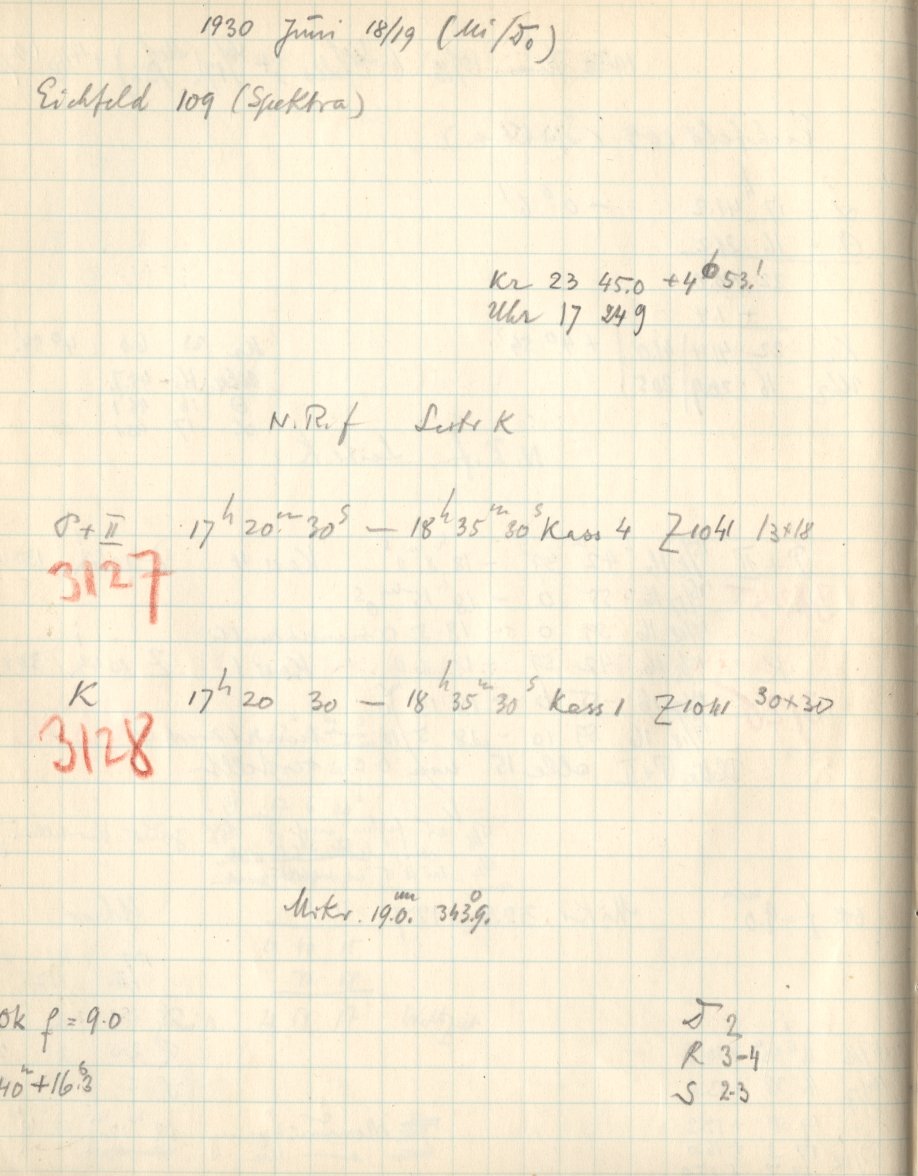 1930 Juni 18/19 (Mi/Do)
Eichfeld 109 (Spektra)
Kr 23 45.0 +4° 53.'
Uhr 17 24 9
N. Ref
P + II 17h 20m 30s — 18h 35m 30s Kass 4 13x18
3127
K 17h 20 30 — 18h 35m 30s Kass 1 30x30
3128
Mikr. 19.0. 343.9.
Ok f = 9.0
40m + 16.3s
D 2
R 3-4
S 2-3